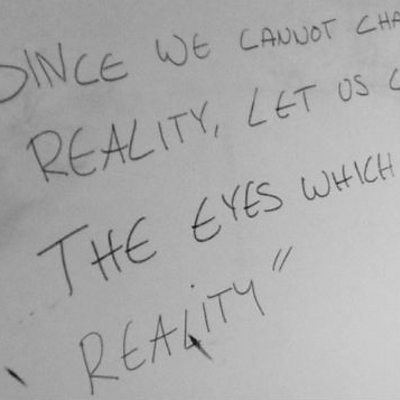 SINCE WE CANNOT CHA
REALITY, LET US C
THE EYES WHICH
REALITY"